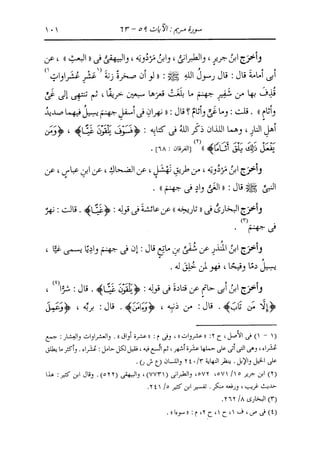 سورة مريم : الآيات ٥٩ - ٦٣ ١٠١
وأخرَج ابنُ جريرٍ ، والطبرانيُّ ، وابنُ مَرْدُويَه ، والبيهقيُّ فى « البعثِ » ، عن
أبى أمامةَ قال : قال رسولُ اللهِ ﷺ : « لو أن صخرةً زِنَةَ (١) عَشْرِ عُشَراواتٍ (١)
قُذِف بها مِن شَفِيرِ جهنمَ ما بلَغت قعرَها سبعين خريفًا ، ثم تنتهِى إلى غَيٍّ
وأثامٍ » . قلت : وما غىٌّ وأثامٌ ؟ قال : « نهران فى أسفلِ جهنمَ يسيلُ فيهما صديدُ
أهلِ النارِ ، وهما اللذان ذكَر اللهُ فى كتابِه : ﴿ فَسَوْفَ يَلْقَوْنَ غَيًّا ﴾ ، ﴿ وَمَن
يَفْعَلْ ذَٰلِكَ يَلْقَ أَثَامًا ﴾ (٢) [الفرقان : ٦٨] .
وأخرَج ابنُ مَرْدُويَه ، من طريقِ نَهْشَلٍ ، عن الضحاكِ ، عن ابنِ عباسٍ ، عن
النبىِّ ﷺ قال : « الغَىُّ وادٍ فى جهنمَ » .
وأخرَج البخارىُّ فى « تاريخِه » عن عائشةَ فى قولِه : ﴿ غَيًّا ﴾ . قالت : نهرٌ
فى جهنمَ (٣) .
وأخرَج ابنُ المنذرِ عن شُفَىِّ بنِ ماتعٍ قال : إن فى جهنمَ واديًا يسمى غيًّا ،
يسيلُ دمًا وقيحًا ، فهو لمن خُلِق له .
وأخرَج ابنُ أبى حاتمٍ عن قتادةَ فى قولِه : ﴿ يَلْقَوْنَ غَيًّا ﴾ . قال : شرًّا (٤) ،
﴿ إِلَّا مَن تَابَ ﴾ . قال : من ذنبِه ، ﴿ وَءَامَنَ ﴾ . قال : بربِّه ، ﴿ وَعَمِلَ
(١ - ١) فى الأصل ، ح ٢ : « عشروات » ، وفى م : « عشرة أواق » . والعشراوات والعِشار : جمع
عُشَراء ، وهى التى أتى على حملها عشرة أشهر ، ثم اتُّسع فيه ، فقيل لكل حامل : عُشَراء . وأكثر ما يطلق
على الخيل والإبل . ينظر النهاية ٢٤٠/٣ واللسان (ع ش ر) .
(٢) ابن جرير ٥٧١/١٥ ، ٥٧٢ ، والطبرانى (٧٧٣١) ، والبيهقى (٥٢٢) . وقال ابن كثير : هذا
حديث غريب ، ورفعه منكر . تفسير ابن كثير ٢٤١/٥ .
(٣) البخارى ٢٦٢/٨ .
(٤) فى ص ، ف ١ ، ح ١ ، ح ٢ ، م : « سوءا » .